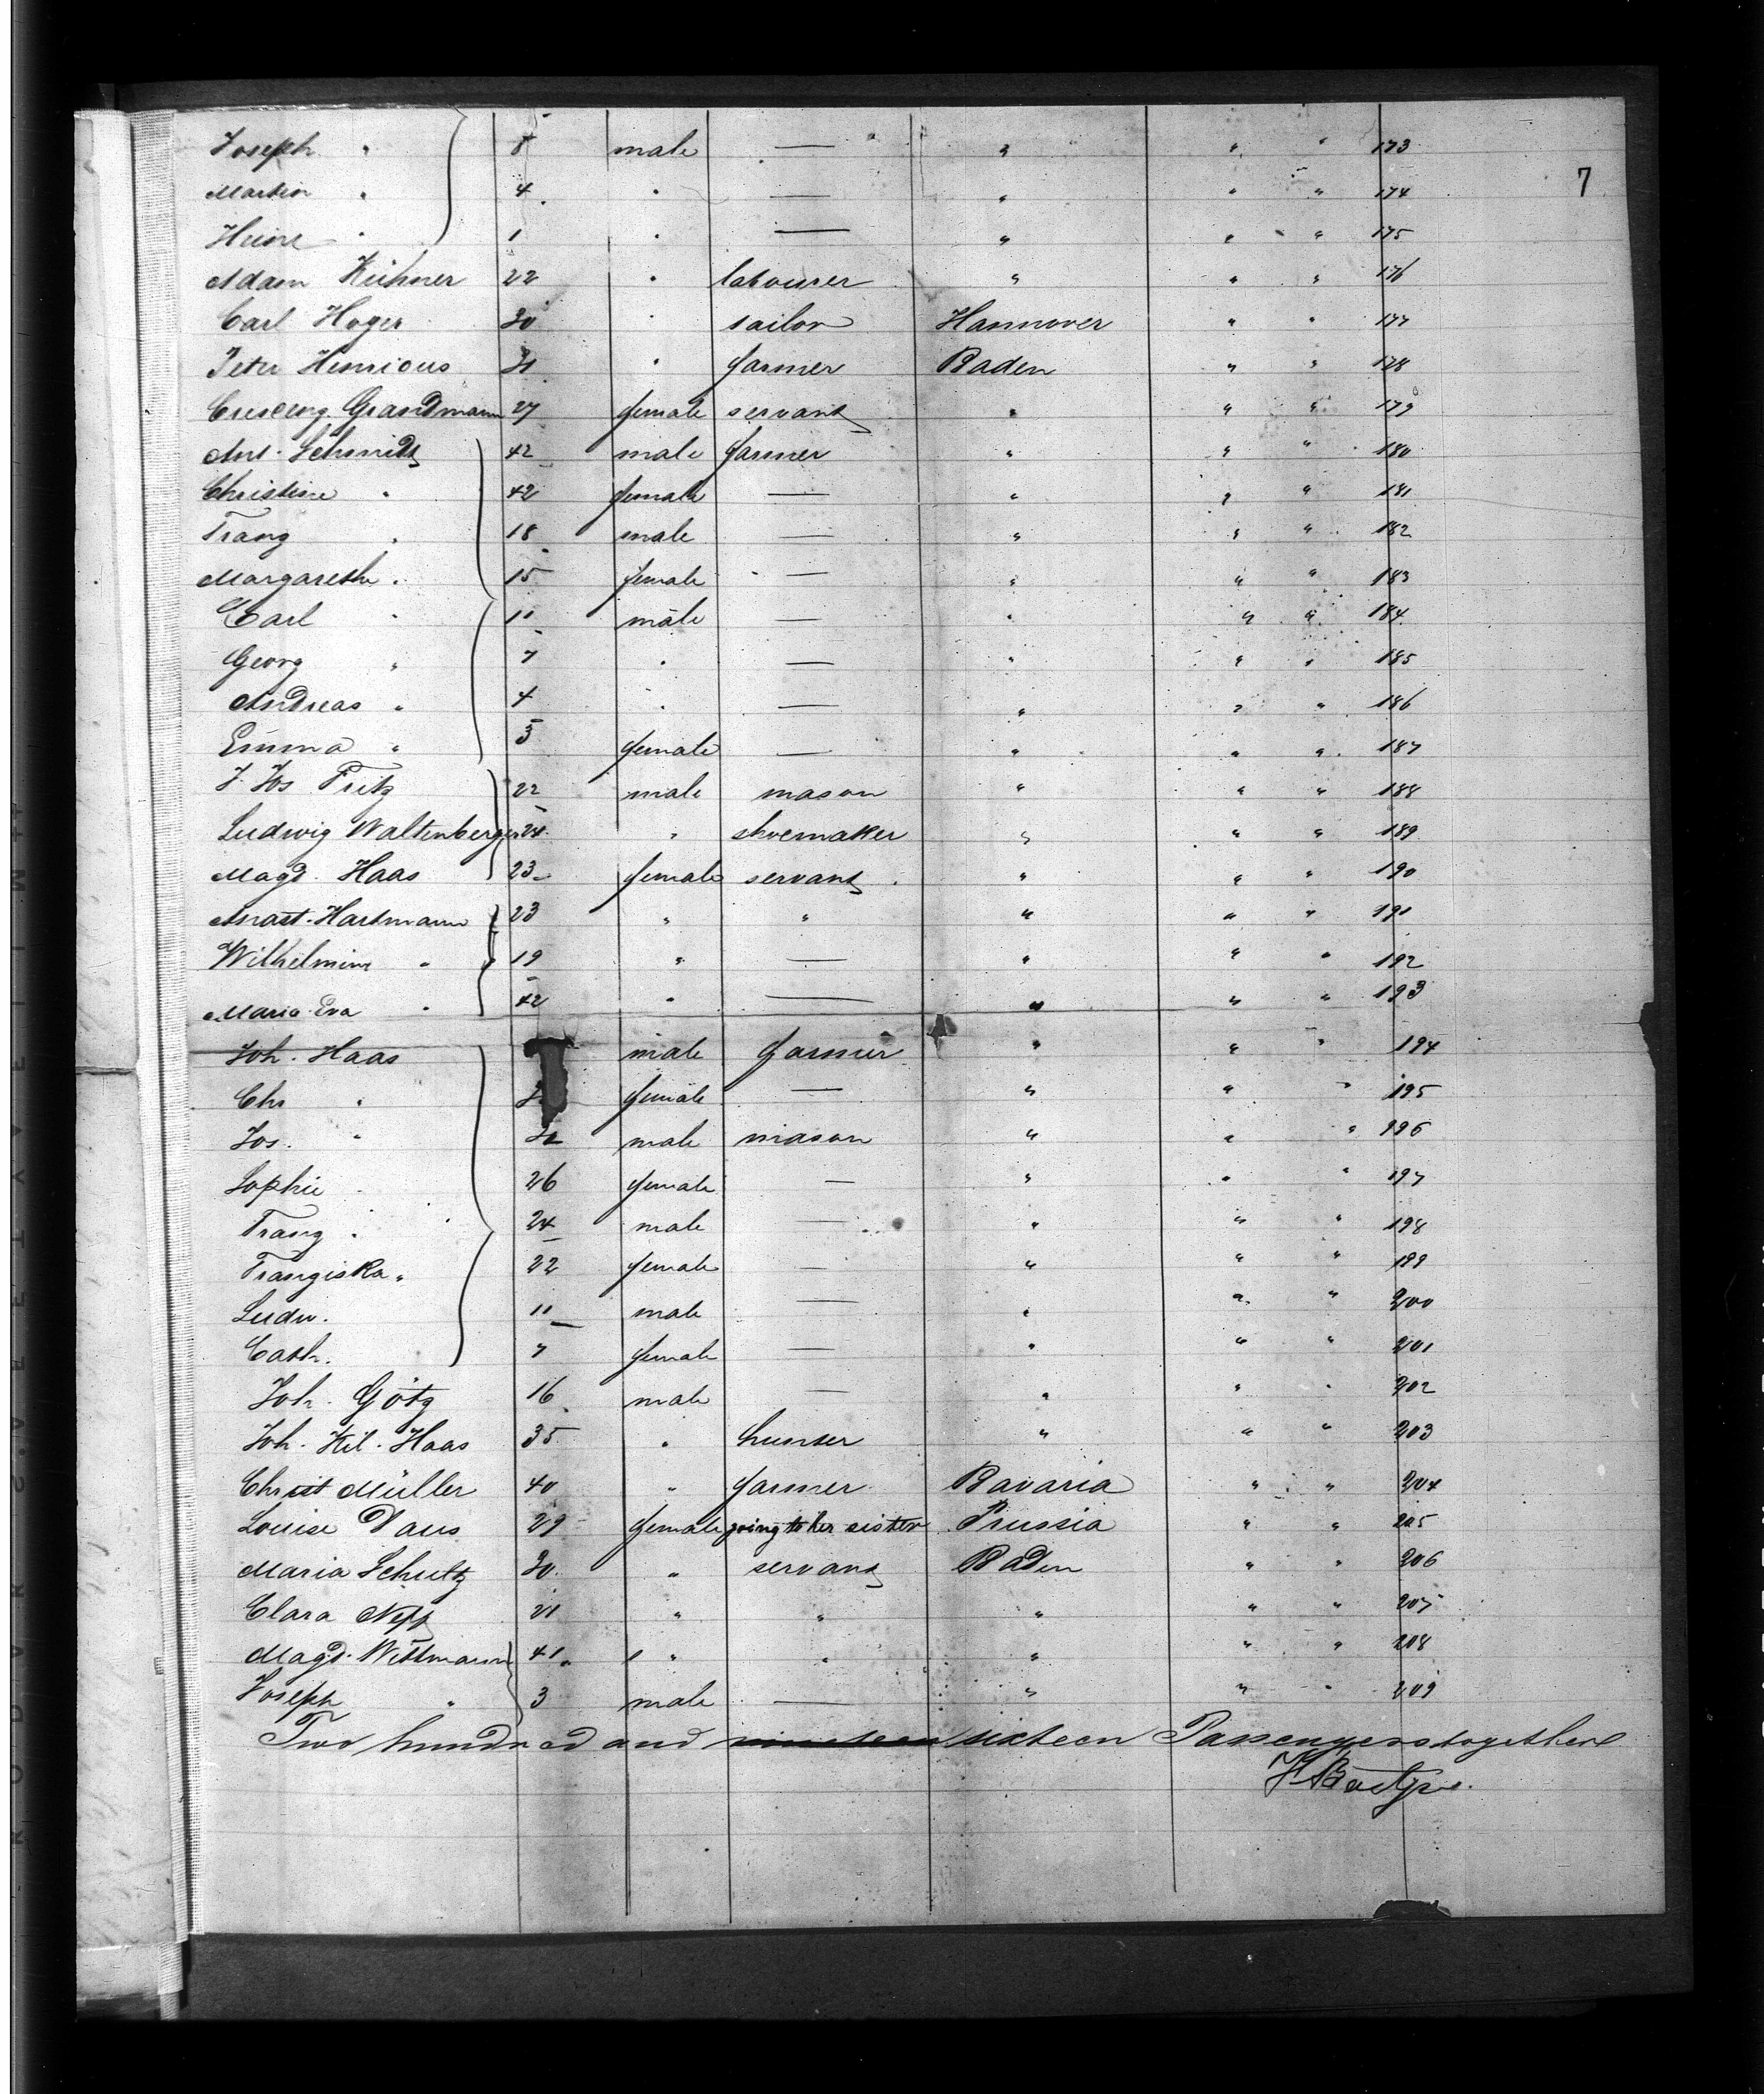 7
Joseph " 8 male — " " " 173
Martin " 4 " — " " " 174
Heinr " 1 " — " " " 175
Adam Kühner 22 " labourer " " " 176
Carl Hoger 30 " sailor Hannover " " 177
Peter Henricus " farmer Baden " " 178
Crescenz Grandmann 27 female servant " " " 179
Ant. Schmidt 42 male farmer " " " 180
Christine " 42 female — " " " 181
Franz " 18 male — " " " 182
Margarethe " 15 female — " " " 183
Carl " 11 male — " " " 184
Georg " 7 " — " " " 185
Andreas " 4 " — " " " 186
Emma " 3 female — " " " 187
J. Jos Fritz 22 male mason " " " 188
Ludwig Waltenberger 24 " shoemaker " " " 189
Magd. Haas 23 female servant " " " 190
Anast. Hartmann 23 " " " " " 191
Wilhelmine " 19 " — " " " 192
Maria Eva " 42 " — " " " 193
Joh. Haas male farmer " " " 194
Chr " female — " " " 195
Jos. " male mason " " " 196
Sophie " 26 female — " " " 197
Franz " 24 male — " " " 198
Franziska " 22 female — " " " 199
Ludw. 11 male — " " " 200
Cath. 7 female — " " " 201
Joh. Götz 16 male — " " " 202
Joh. Kil. Haas 35 " hunter " " " 203
Christ Müller 40 " farmer Bavaria " " 204
Louise Daus 29 female going to her sister Prussia " " 205
Maria Schutz 30 " servant Baden " " 206
Clara 21 " " " " " 207
Magd. Wittmann 41 " " " " " 208
Joseph " 3 male — " " " 209
Two hundred and nineteen sixteen Passengers together